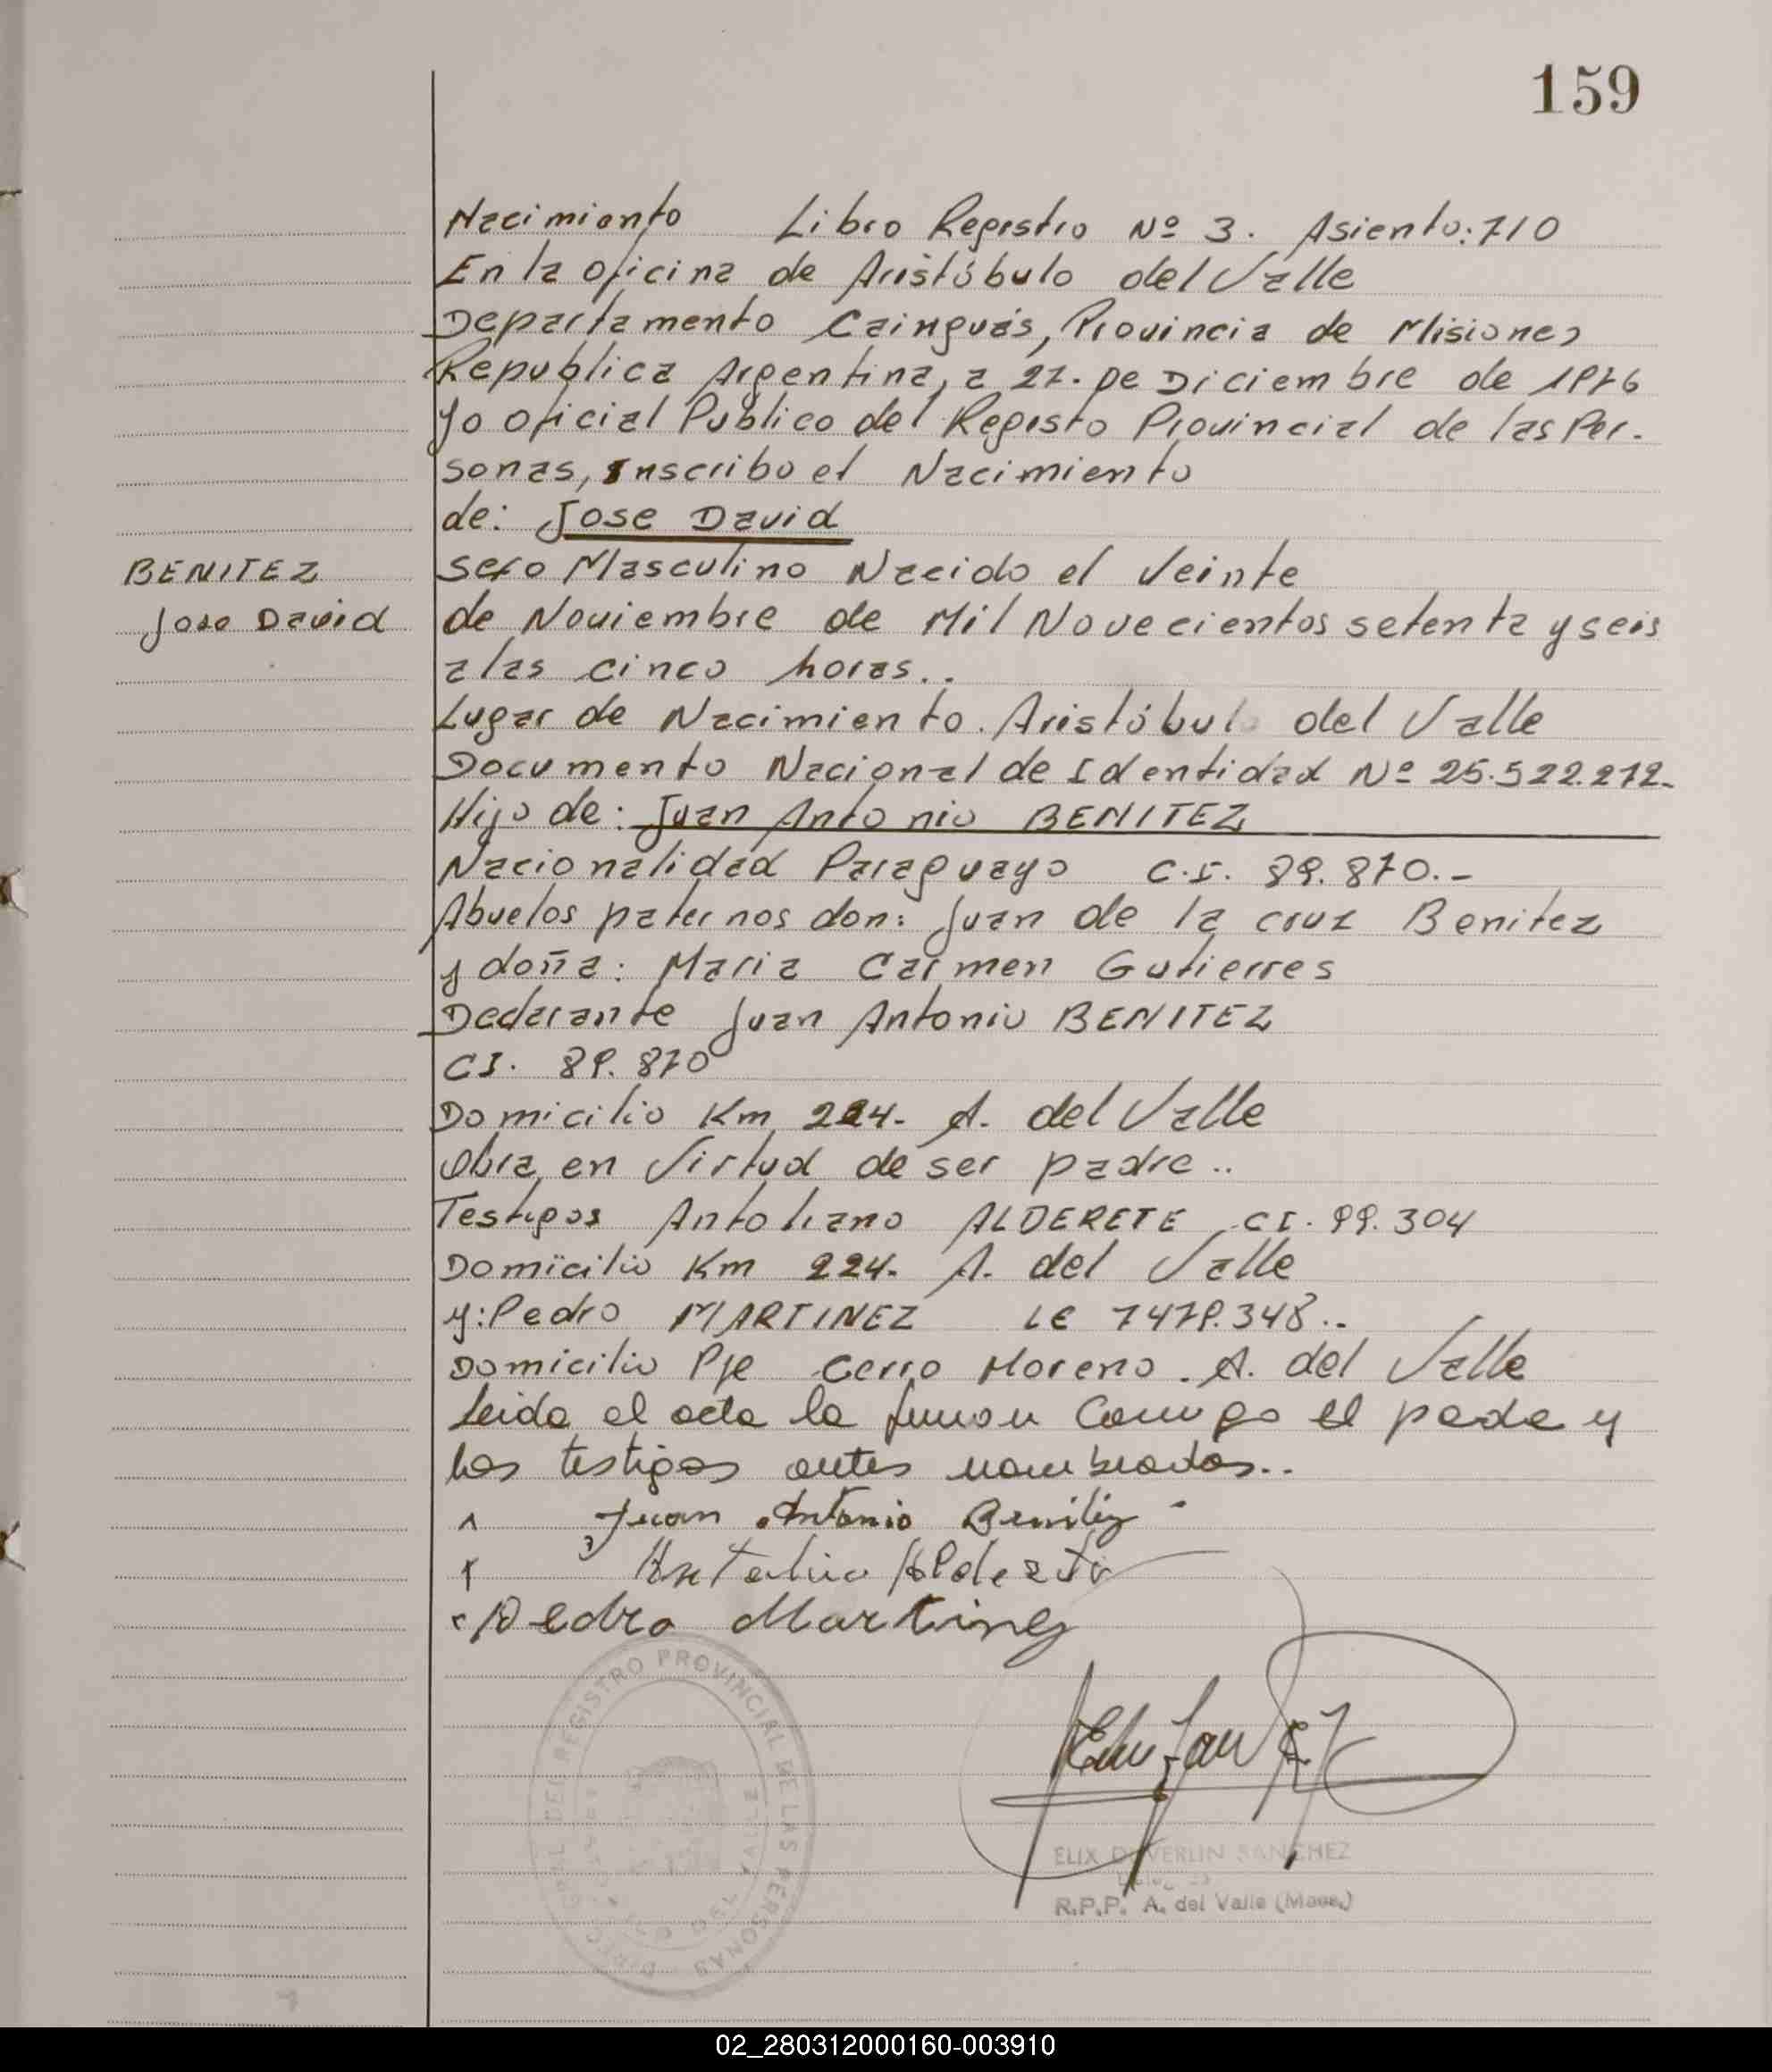 159
Nacimiento Libro Registro Nº 3. Asiento: 710
En la oficina de Aristóbulo del Valle
Departamento Cainguás, Provincia de Misiones
Republica Argentina, a 27. De Diciembre de 1976
Yo oficial Publico del Registo Provincial de las Per-
sonas, Inscribo el Nacimiento
de: Jose David
BENITEZ
Jose David
sexo Masculino Nacido el Veinte
de Noviembre de Mil Novecientos setenta y seis
a las cinco horas..
Lugar de Nacimiento. Aristóbulo del Valle
Documento Nacional de Identidad Nº 25.522.272.-
Hijo de: Juan Antonio BENITEZ
Nacionalidad Paraguayo C.I. 89.870.-
Abuelos paternos don: Juan de la cruz Benitez
y doña: Maria Carmen Gutierres
Declarante Juan Antonio BENITEZ
CI. 89.870
Domicilio Km 224. A. del Valle
Obra en Virtud de ser padre..
Testigos Antoliano ALDERETE CI. 99.304
Domicilio Km 224. A. del Valle
y: Pedro MARTINEZ LE 7479.348..
Domicilio Pje Cerro Moreno. A. del Valle
Leida el acta la firman Conmigo el padre y
los testigos antes nombrados..
Juan Antonio Benitez
Pedro Martinez
REGISTRO PROVINCIAL DE LAS PERSONAS
DEL VALLE
ELIX SANCHEZ
R.P.P. A. del Valle (Mnes.)
02_280312000160-003910